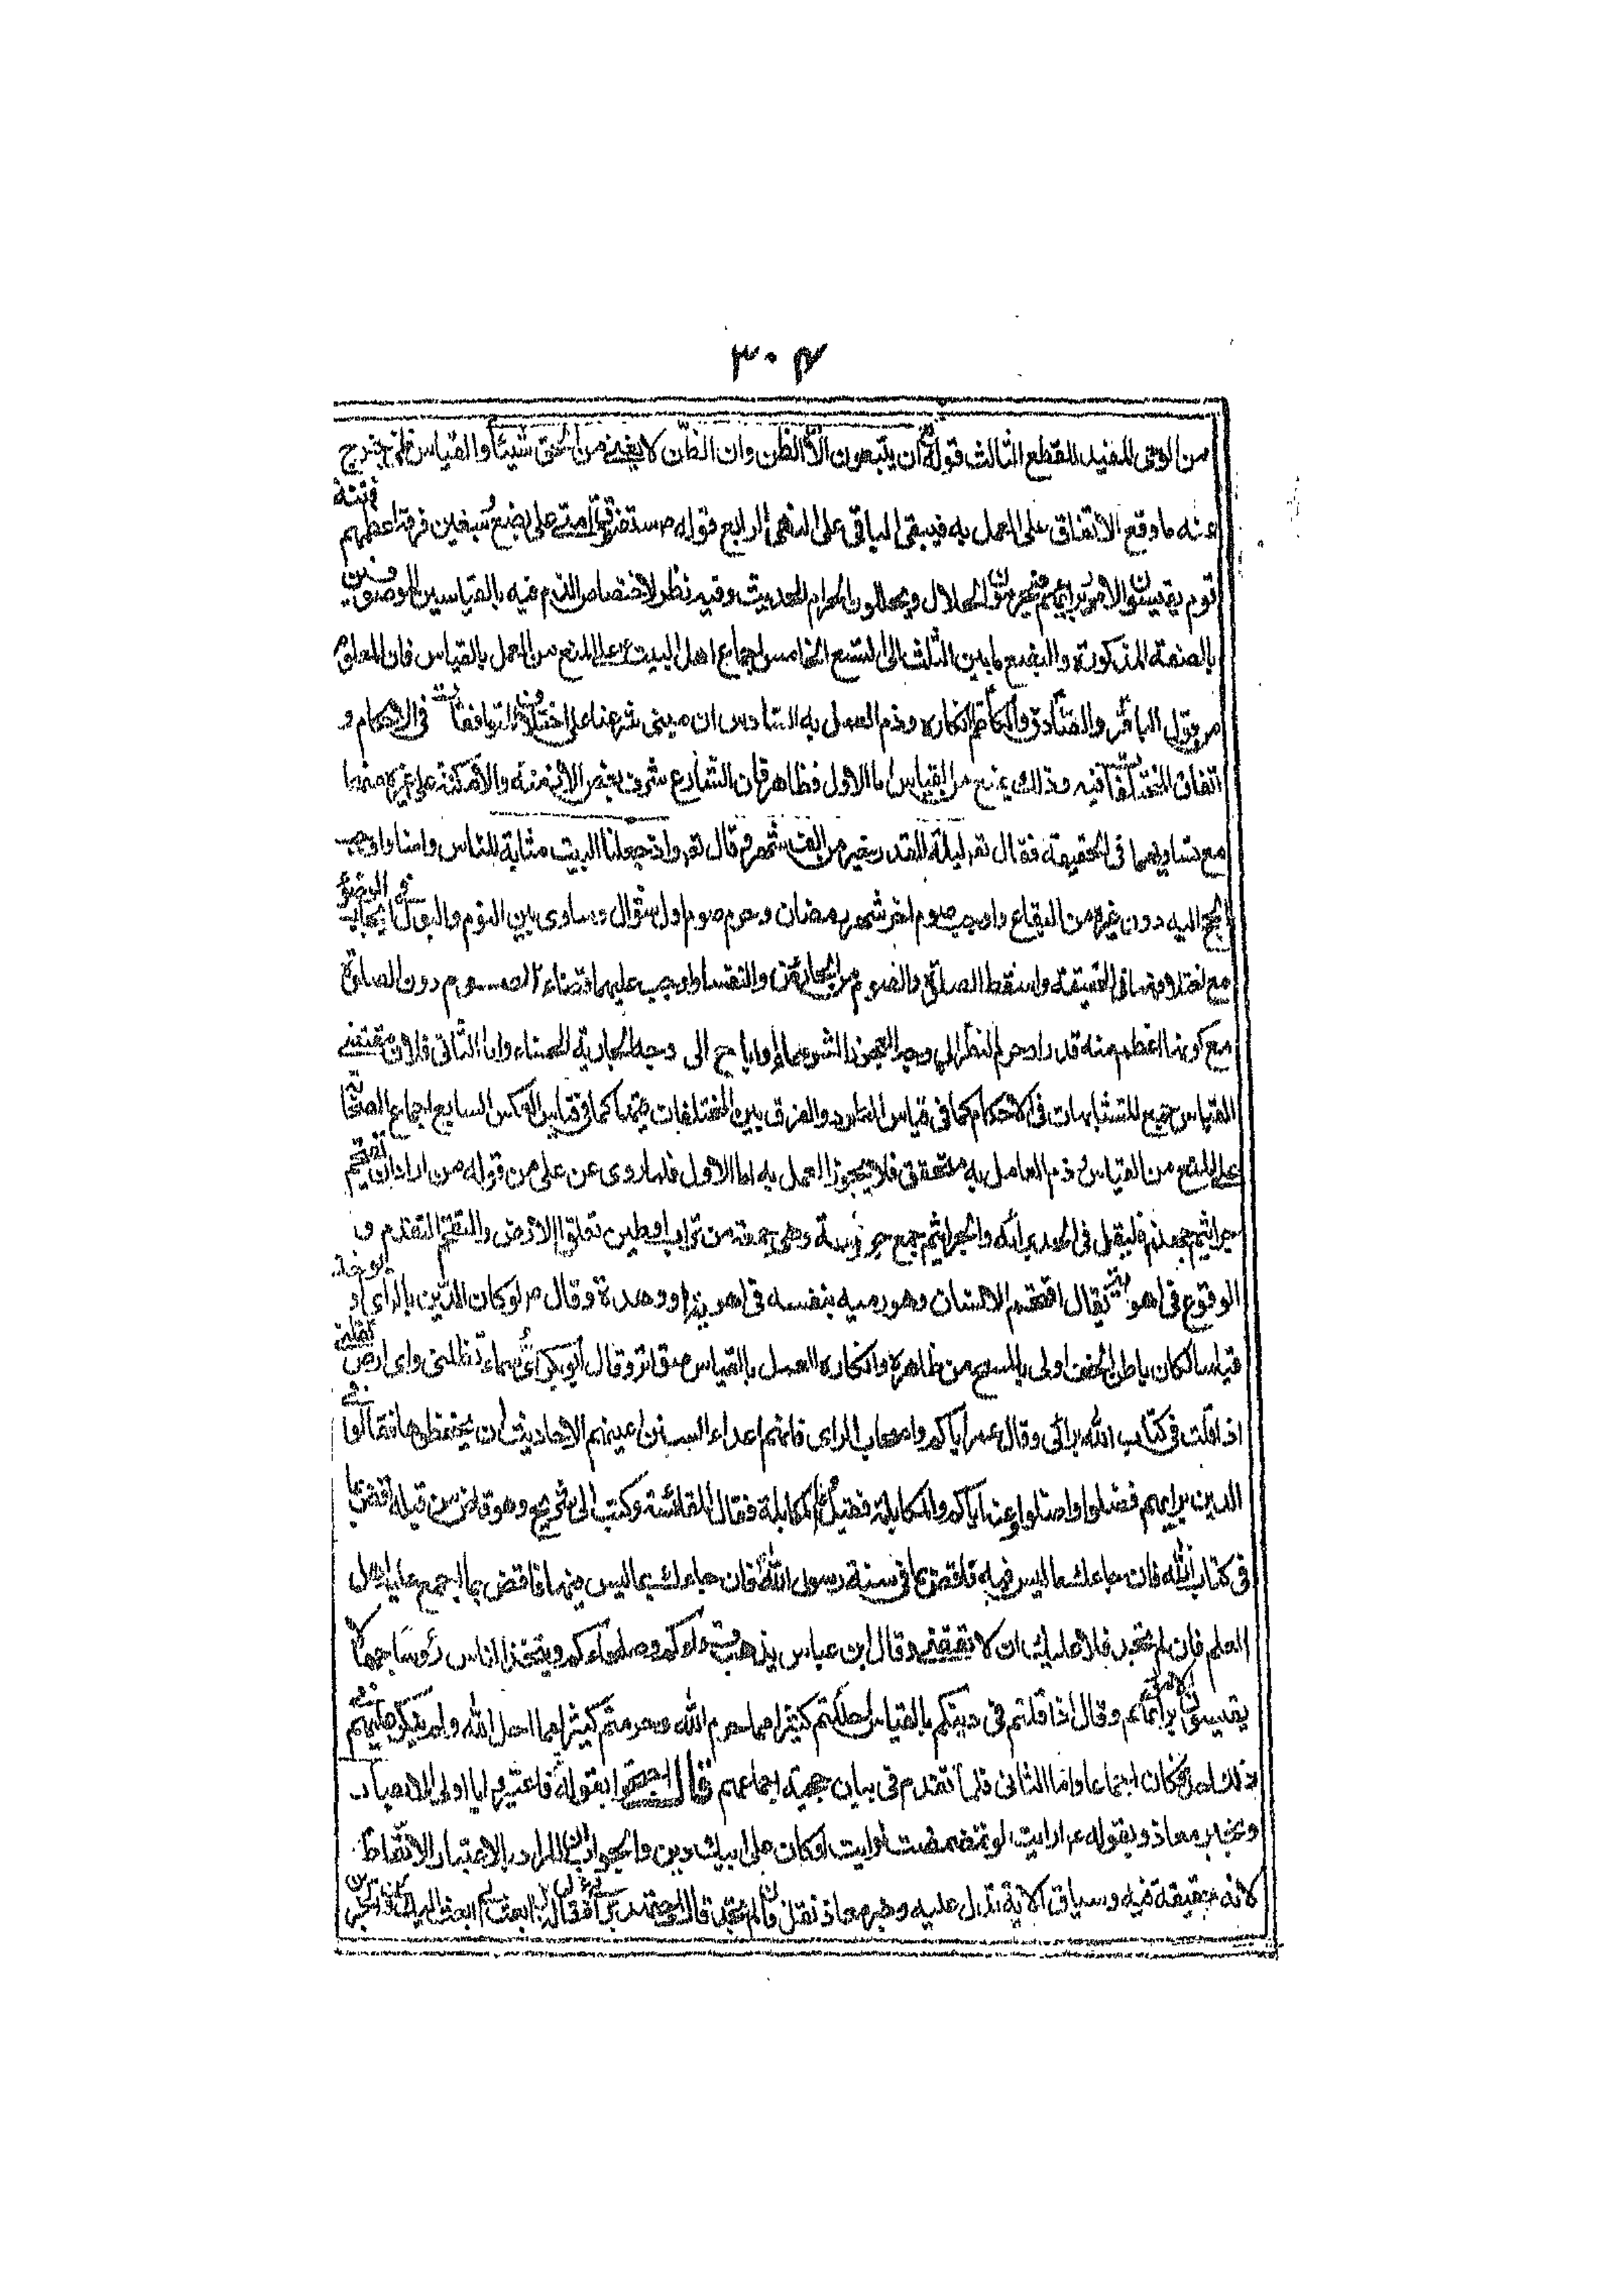 ٣٠٣
من الوحى المفيد للقطع الثالث قوله ان يتبعون الا الظن وان الظن لا يغنى من الحق شيئا والقياس ظن خرج
عنه ما وقع الاتفاق على العمل به فيبقى الباقى على النهى الرابع قوله ستفترق امتى على بضع وسبعين فرقة اعظمهم فتنة
قوم يقيسون الامور برأيهم فيحرمون الحلال ويحللون الحرام الحديث وفيه نظر لاختصاص الذم فيه بالقياسين الموصوفين
بالصفة المذكورة والبضع ما بين الثلث الى التسع الخامس اجماع اهل البيت ع على المنع من العمل بالقياس فان المعلوم
من قول الباقر والصادق والكاظم انكاره وذم العمل به السادس ان مبنى شرعنا على اختلاف المتوافقات فى الاحكام و
اتفاق المختلفات فيه وذلك يمنع من القياس اما الاول فظاهر فان الشارع شرف بعض الازمنة والامكنة على غيره منها
مع تساويهما فى الحقيقة فقال تعه ليلة القدر خير من الف شهر وقال تعه واذ جعلنا البيت مثابة للناس وامنا واوجب
الحج اليه دون غيره من البقاع واوجب صوم اخر شهر رمضان وحرم صوم اول شوال وساوى بين النوم والبول فى ايجاب الوضوء
مع اختلافهما فى الحقيقة واسقط الصلوة والصوم من الحائض والنفسا واوجب عليهما قضاء الصوم دون الصلوة
مع كونها اعظم منه قدرا وحرم النظر الى وجه العجوز الشوهاء واباح الى وجه الجارية الحسناء واما الثانى فلان مقتضى
القياس جمع المتشابهات فى الاحكام كما فى قياس الطرد والفرق بين المختلفات فيها كما فى قياس العكس السابع اجماع الصحابة
على المنع من القياس وذم العامل به متحقق فلا يجوز العمل به اما الاول فلما روى عن على من قوله من اراد ان يقتحم
جراثيم جهنم فليقل فى الجد برأيه والجراثيم جمع جرثومة وهى جمعة من تراب او طين تعلو الارض والتقحم التقدم و
الوقوع فى اهوية يقال اقتحم الانسان وهو رميه بنفسه فى اهوية او وهدة وقال م لو كان الدين بالراى او يوخذ
قياسا لكان باطن الخف اولى بالمسح من ظاهره وانكاره العمل بالقياس متواتر وقال ابو بكر اى سماء تظلنى واى ارض تقلنى
اذا قلت فى كتاب الله برائى وقال عمر اياكم واصحاب الراى فانهم اعداء السنن اعيتهم الاحاديث ان يحفظوها فقالوا فى
الدين برايهم فضلوا واضلوا وعنه اياكم والمكايلة فقيل ما المكايلة فقال المقائسة وكتب الى شريح وهو قاض من قبله اقض بما
فى كتاب الله فان جاءك ما ليس فيه فاقض بما فى سنة رسول الله فان جاءك بما ليس فيها فاقض بما اجمع عليه اهل
العلم فان لم تجد فلا عليك ان لا تقضى وقال ابن عباس يذهب قراؤكم وصلحاؤكم ويتخذ الناس رؤسا جهالا
يقيسون الامور برائهم وقال اذا قلتم فى دينكم بالقياس احللتم كثيرا مما حرم الله وحرمتم كثيرا مما احل الله ولم ينكر عليهم فى
ذلك احد فكان اجماعا واما الثانى فلما تقدم فى بيان حجية اجماعهم قال احتجوا بقوله فاعتبروا يا اولى الابصار
وبخبر معاذ وبقوله ع ارايت لو تمضمضت ارايت لو كان على ابيك دين والجواب ان المراد بالاعتبار الاتعاظ
لانه حقيقة فيه وسياق الآية تدل عليه وخبر معاذ نقل فان لم تجد قال اجتهد برأى فقال لا ابعث الى ابعث اليك